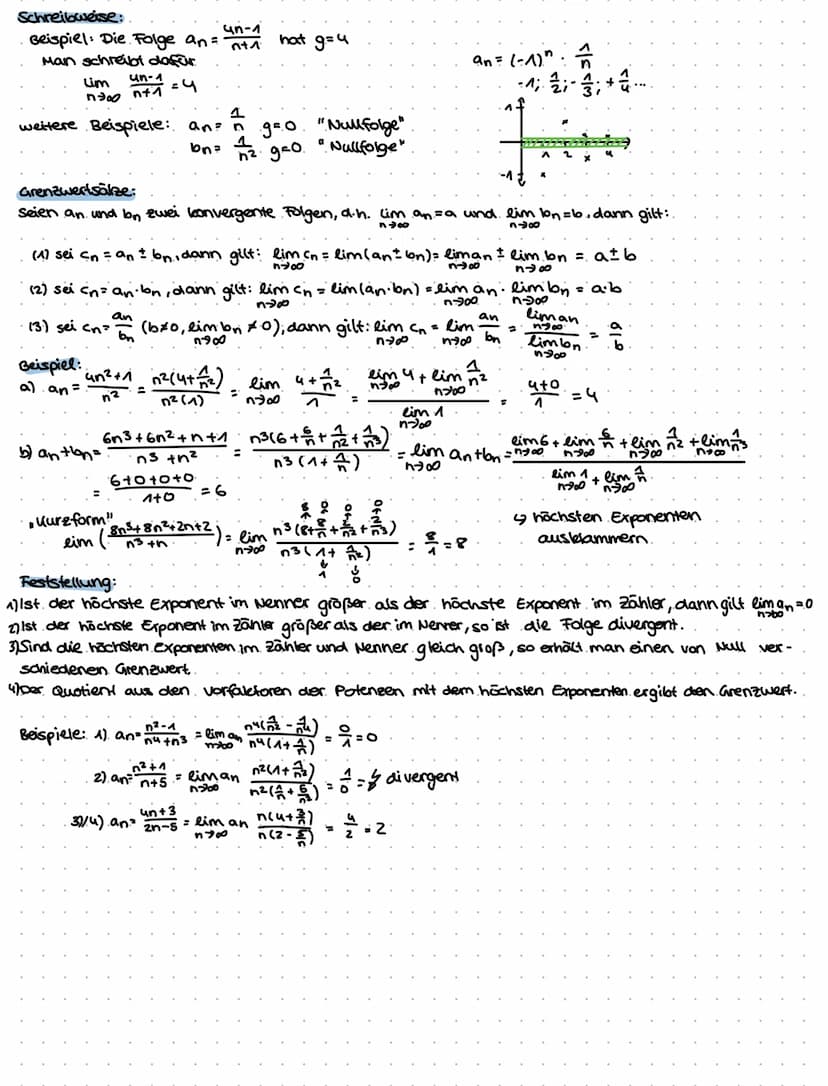 Schreibweise:
Beispiel: Die Folge an = 4n-1/n+1 hat g=4
Man schreibt dafür
lim n→∞ 4n-1/n+1 = 4
an = (-1)^n · 1/n
-1; 1/2; -1/3; +1/4 ...
1
1 2 4
-1
weitere Beispiele: an = 1/n g=0 "Nullfolge"
bn = 1/n² g=0 "Nullfolge"
Grenzwertsätze:
Seien an und bn zwei konvergente Folgen, d.h. lim n→∞ an = a und lim n→∞ bn = b, dann gilt:
(1) sei cn = an ± bn, dann gilt: lim n→∞ cn = lim(an ± bn) = lim n→∞ an ± lim n→∞ bn = a ± b
(2) sei cn = an · bn, dann gilt: lim n→∞ cn = lim(an · bn) = lim n→∞ an · lim n→∞ bn = a·b
(3) sei cn = an/bn (b≠0, lim n→∞ bn ≠ 0), dann gilt: lim n→∞ cn = lim n→∞ an/bn = lim n→∞ an / lim n→∞ bn = a/b
Beispiel:
a) an = 4n²+1/n² = n²(4+1/n²)/n²(1) = lim n→∞ 4+1/n²/1 = lim n→∞ 4 + lim n→∞ 1/n² / lim n→∞ 1 = 4+0/1 = 4
b) an+bn = 6n³+6n²+n+1/n³+n² = n³(6+6/n+1/n²+1/n³)/n³(1+1/n) = lim n→∞ an+bn = lim n→∞ 6 + lim n→∞ 6/n + lim n→∞ 1/n² + lim n→∞ 1/n³ / lim n→∞ 1 + lim n→∞ 1/n
= 6+0+0+0/1+0 = 6
„Kurzform"
lim (8n³+8n²+2n+2/n³+n) = lim n→∞ n³(8+8/n+2/n²+2/n³)/n³(1+1/n²) = 8/1 = 8
8 0 0 0
1 0
↳ höchsten Exponenten
ausklammern
Feststellung:
1) Ist der höchste Exponent im Nenner größer als der höchste Exponent im Zähler, dann gilt lim n→∞ an = 0
2) Ist der höchste Exponent im Zähler größer als der im Nenner, so ist die Folge divergent.
3) Sind die höchsten Exponenten im Zähler und Nenner gleich groß, so erhält man einen von Null ver-
schiedenen Grenzwert.
4) Der Quotient aus den Vorfaktoren der Potenzen mit dem höchsten Exponenten ergibt den Grenzwert.
Beispiele: 1) an = n²-1/n⁴+n³ = lim n→∞ an n⁴(1/n² - 1/n⁴)/n⁴(1+1/n) = 0/1 = 0
2) an = n²+1/n+5 = lim n→∞ an n²(1+1/n²)/n²(1/n+5/n²) = 1/0 = ↯ divergent
3)/4) an = 4n+3/2n-5 = lim n→∞ an n(4+3/n)/n(2-5/n) = 4/2 = 2